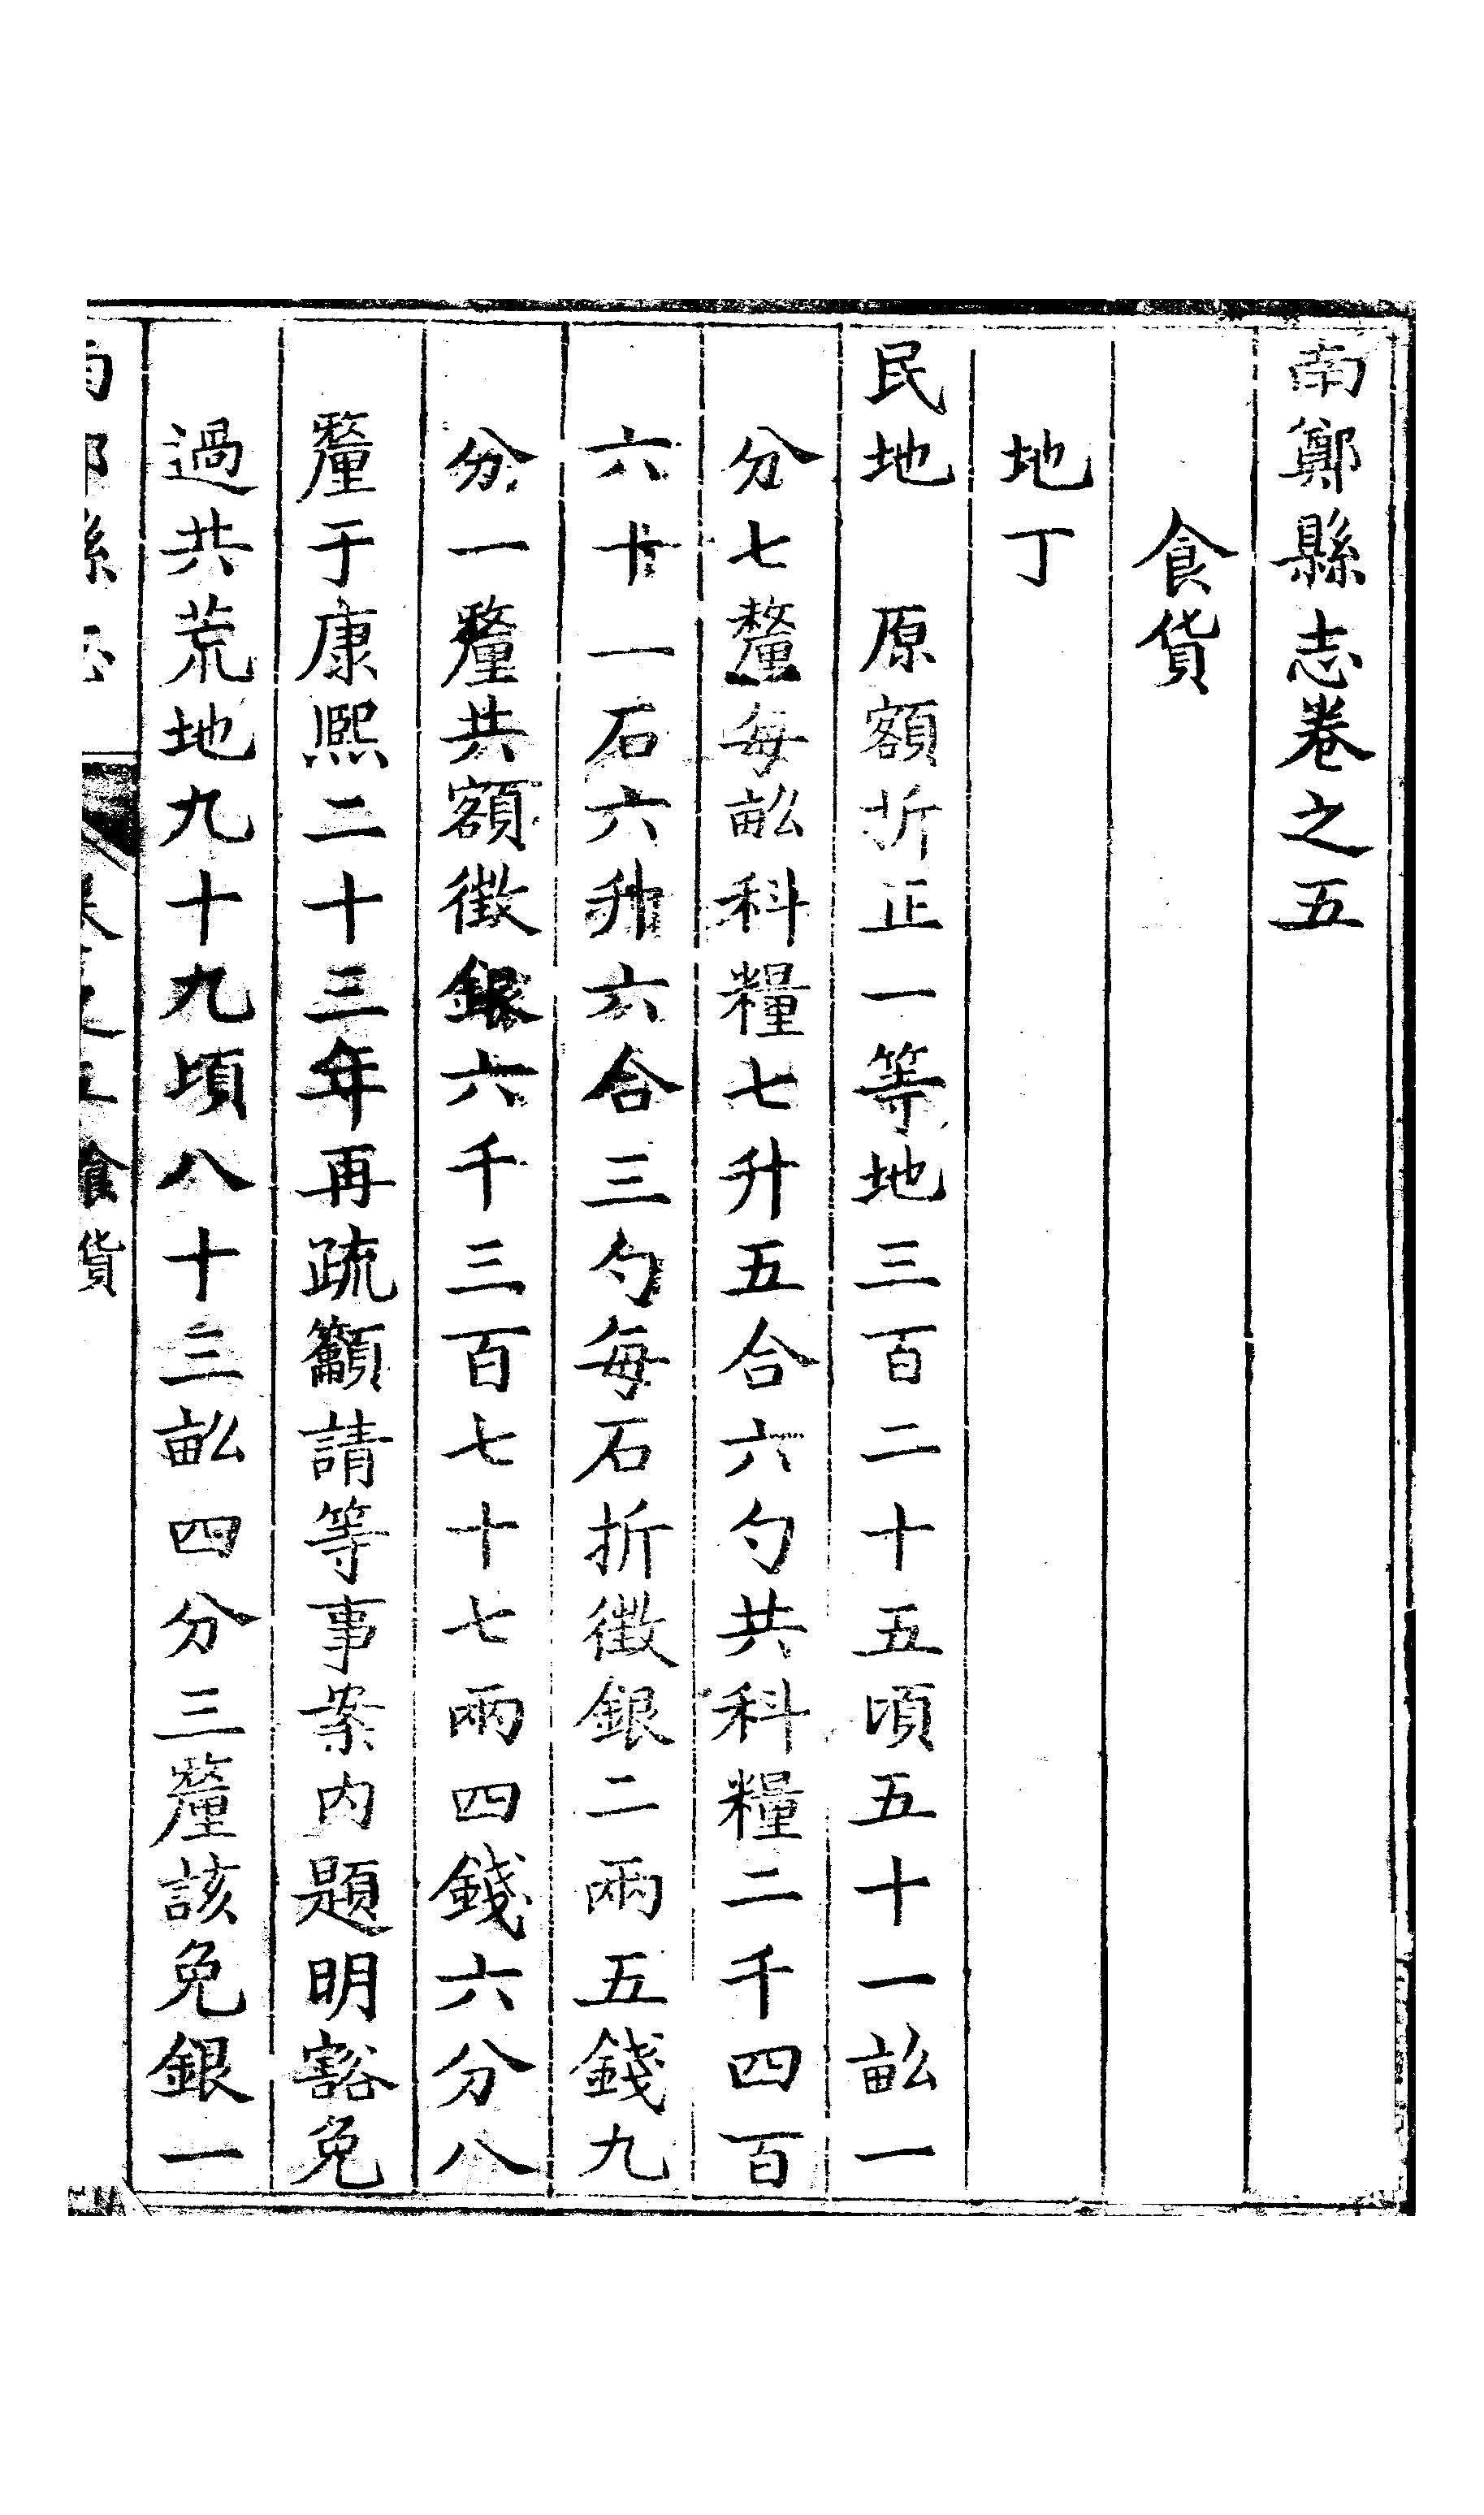 南鄭縣志卷之五
食貨
地丁
民地　原額折正一等地三百二十五頃五十一畝一
分七釐每畝科糧七升五合六勺共科糧二千四百
六十一石六升六合三勺每石折徵銀二兩五錢九
分一釐共額徵銀六千三百七十七兩四錢六分八
釐于康熙二十三年再疏籲請等事案內題明豁免
過共荒地九十九頃八十三畝四分三釐該免銀一
南鄭縣志　卷之五食貨